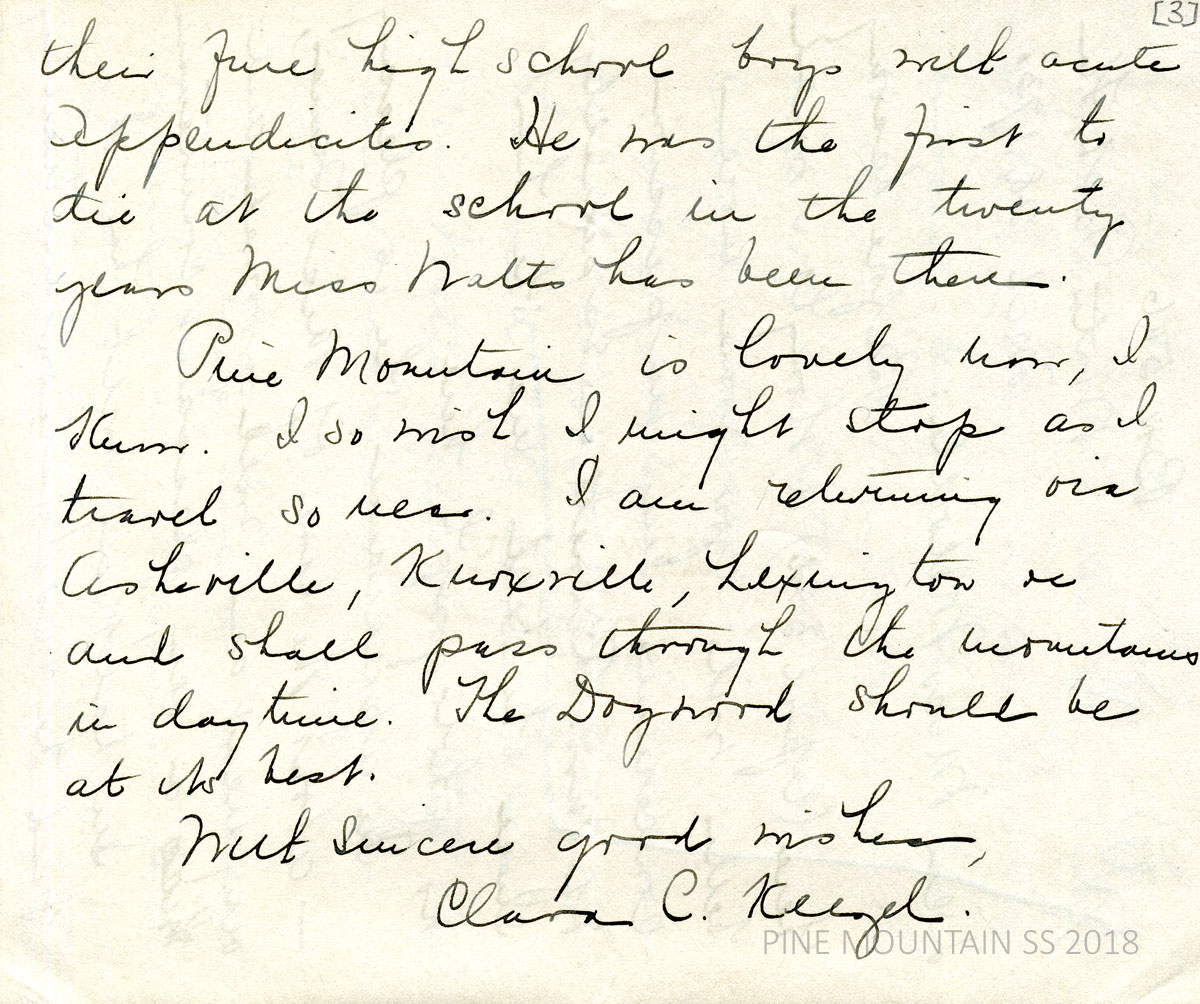 [3]
their fine high school boys with acute
appendicitis. He was the first to
die at the school in the twenty
years Miss Watts has been there.
Pine Mountain is lovely now, I
know. I so wish I might stop as I
travel so near. I am returning via
Asheville, Knoxville, Lexington
and shall pass through the mountains
in daytime. The Dogwood should be
at its best.
With sincere good wishes,
Clara C.
PINE MOUNTAIN SS 2018